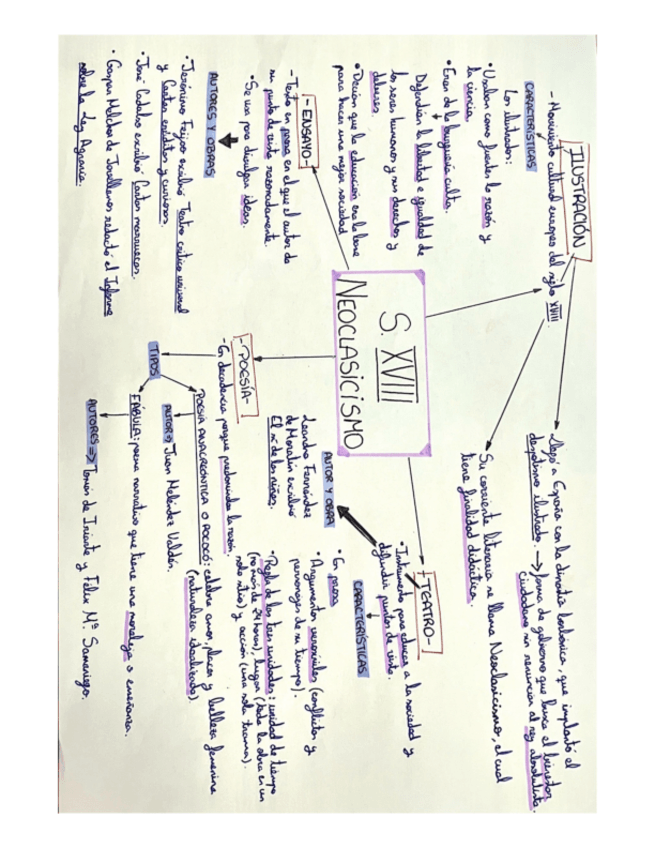 ILUSTRACIÓN
- Movimiento cultural europeo del siglo XVIII.
CARACTERÍSTICAS
Los ilustrados:
• Usaban como fuentes la razón y
la ciencia.
• Eran de la burguesía culta.
Defendían la libertad e igualdad de
los seres humanos y sus derechos y
deberes.
• Decían que la educación era la base
para hacer una mejor sociedad.
Llegó a España con la dinastía borbónica, que implantó el
despotismo ilustrado. → forma de gobierno que busca el bienestar
ciudadano sin renunciar al rey absolutista.
Su corriente literaria se llama Neoclasicismo, el cual
tiene finalidad didáctica.
S. XVIII
NEOCLASICISMO
- ENSAYO -
- Texto en prosa en el que el autor da
su punto de vista razonadamente.
• Se usa para divulgar ideas.
AUTORES Y OBRAS
• Jerónimo Feijoo escribió Teatro crítico universal
y Cartas eruditas y curiosas.
• José Cadalso escribió Cartas marruecas.
• Gaspar Melchor de Jovellanos redactó el Informe
sobre la Ley Agraria.
- TEATRO -
• Instrumento para educar a la sociedad y
difundir puntos de vista.
CARACTERÍSTICAS
• En prosa
• Argumentos verosímiles (conflictos y
personajes de su tiempo).
• Regla de las tres unidades: unidad de tiempo
(no más de 24 horas), lugar (toda la obra en un
solo sitio) y acción (una sola trama).
AUTOR Y OBRA
Leandro Fernández
de Moratín escribió
El sí de las niñas.
- POESÍA -
- En decadencia porque predominaba la razón.
TIPOS
POESÍA ANACREÓNTICA O ROCOCÓ: celebra amor, placer y belleza femenina
(naturaleza idealizada).
AUTOR ⇒ Juan Meléndez Valdés.
FÁBULA: poema narrativo que tiene una moraleja o enseñanza.
AUTORES ⇒ Tomás de Iriarte y Félix Mª Samaniego.